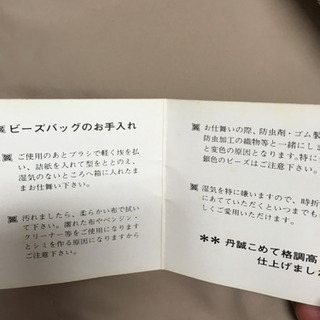 ビーズバッグのお手入れ
ご使用のあとブラシで軽く埃を払
い、詰紙を入れて型をととのえ、
湿気のないところへ箱に入れたま
まお仕舞い下さい。
汚れましたら、柔らかい布で拭い
て下さい。濡れた布やベンジン・
クリーナー等をご使用になります
とシミを作る原因になりますから
ご注意下さい。
お仕舞いの際、防虫剤・ゴム製
防虫加工の織物等と一緒にします
と変色の原因となります。特に
銀色のビーズはご注意下さい。
湿気を特に嫌いますので、時折
にあてていただくといつまでも
しくご愛用いただけます。
** 丹誠こめて格調高
仕上げまし